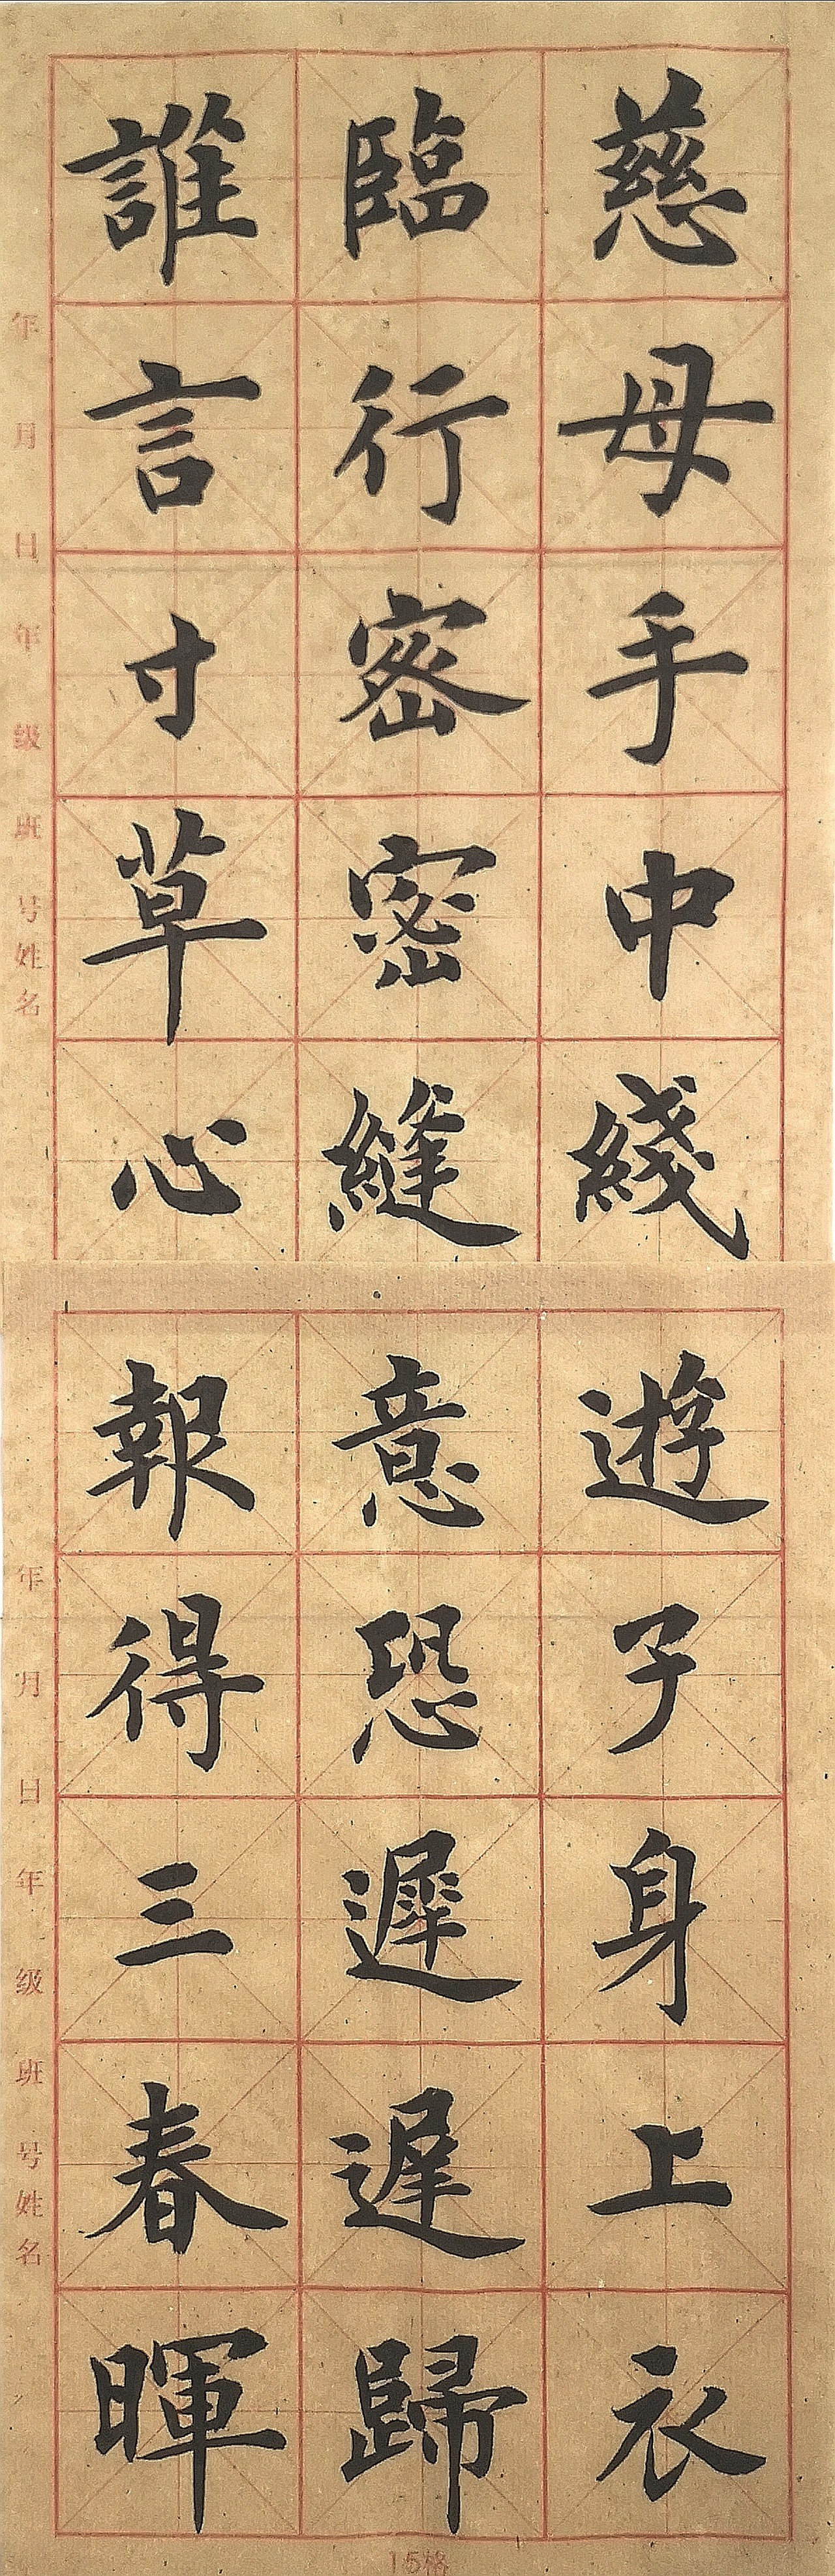 慈母手中綫遊子身上衣
臨行密密縫意恐遲遲歸
誰言寸草心報得三春暉
年 月 日 年 级 班 号 姓名
年 月 日 年 级 班 号 姓名
15格